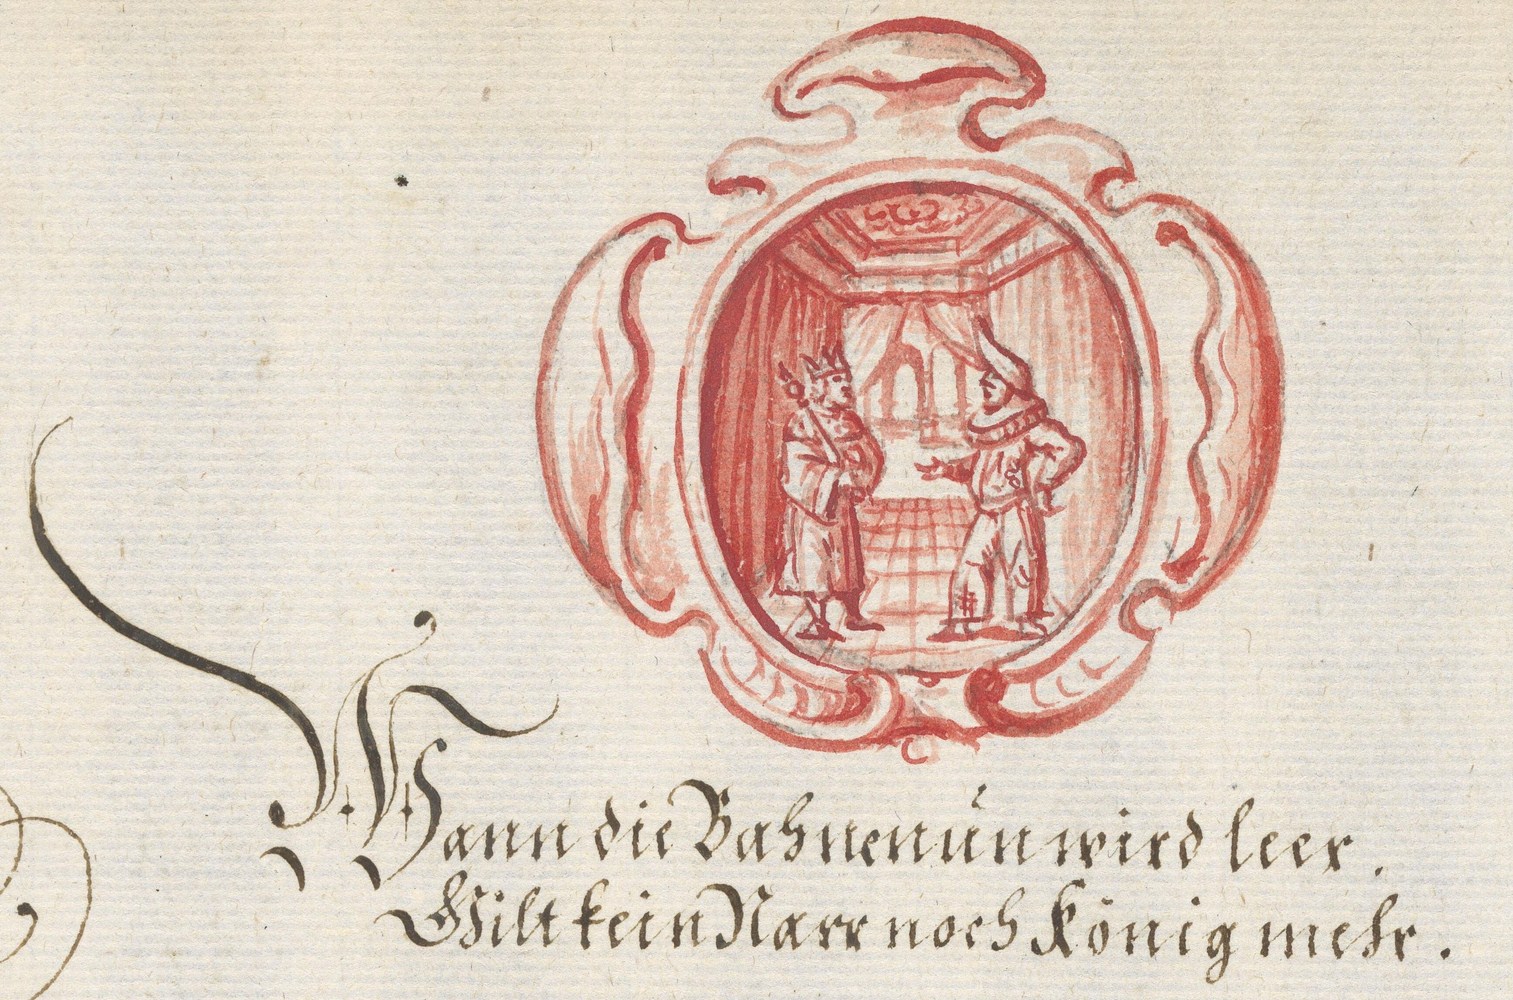 Wann die Bahne nún wird leer.
Gilt kein Narr noch König mehr.